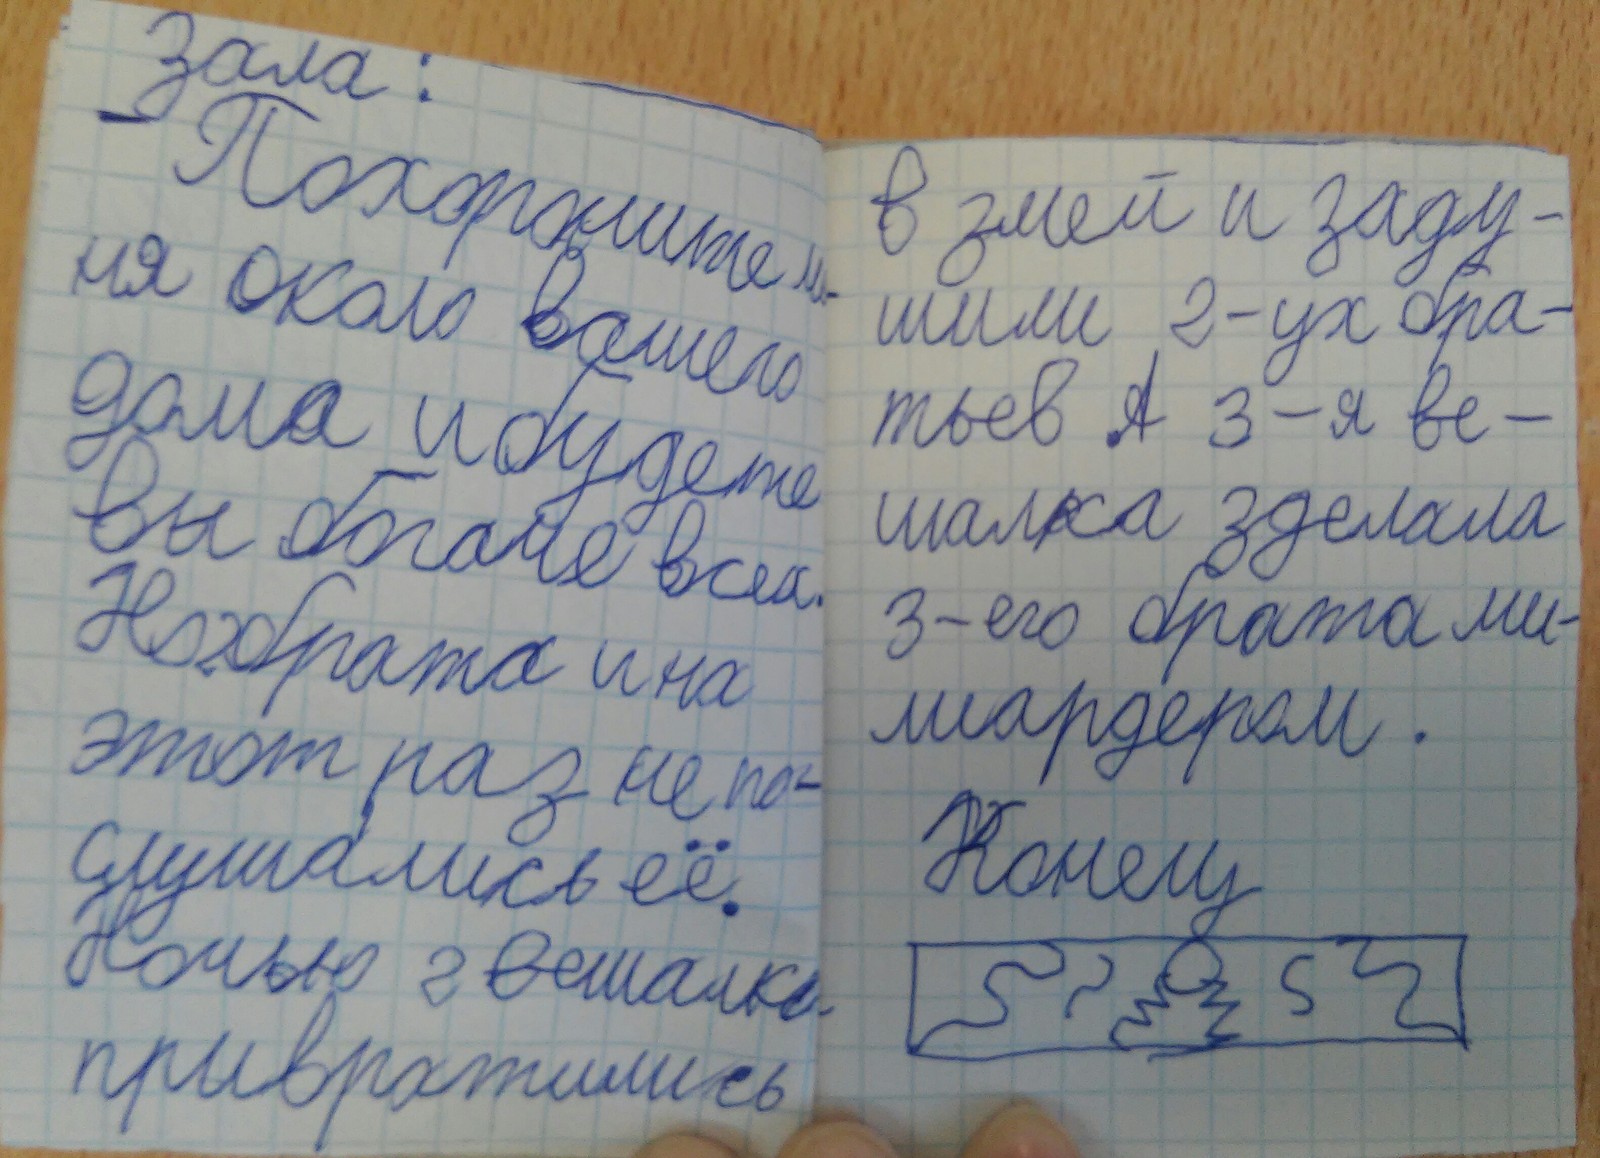 зала:
- Похороните м-
ня около вашего
дома и будете
вы богаче всех.
Но 2 брата и на
этот раз не по-
слушались её.
Ночью 2 вешалки
привратились
в змей и заду-
шили 2-ух бра-
тьев А 3-я ве-
шалка зделала
3-его брата ми-
лиардером.
Конец